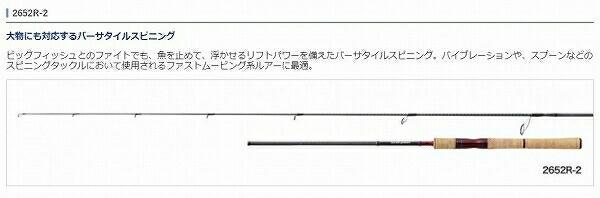 2652R-2
大物にも対応するバーサタイルスピニング
ビッグフィッシュとのファイトでも、魚を止めて、浮かせるリフトパワーを備えたバーサタイルスピニング。バイブレーションや、スプーンなどの
スピニングタックルにおいて使用されるファストムービング系ルアーに最適。
2652R-2